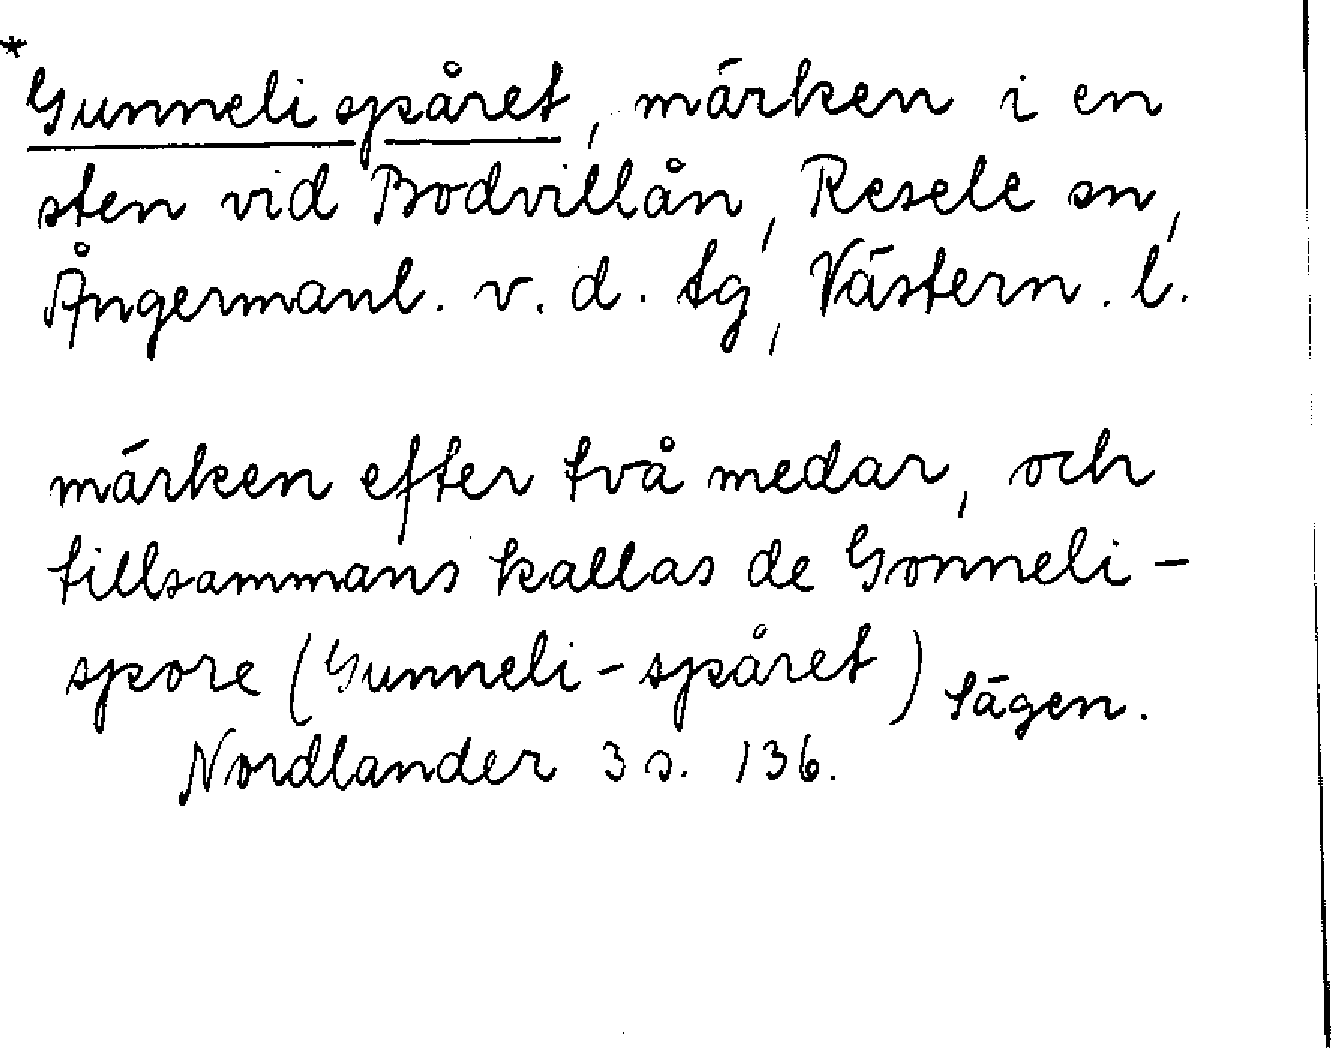 *
Gunnelispåret, märken i en
sten vid Bodvillån, Resele sn,
Ångermanl. v. d. tg, Västern. l.
märken efter två medar, och
tillsammans kallas de Gonneli-
spore (Gunneli-spåret) Sägen.
Nordlander 3 s. 136.